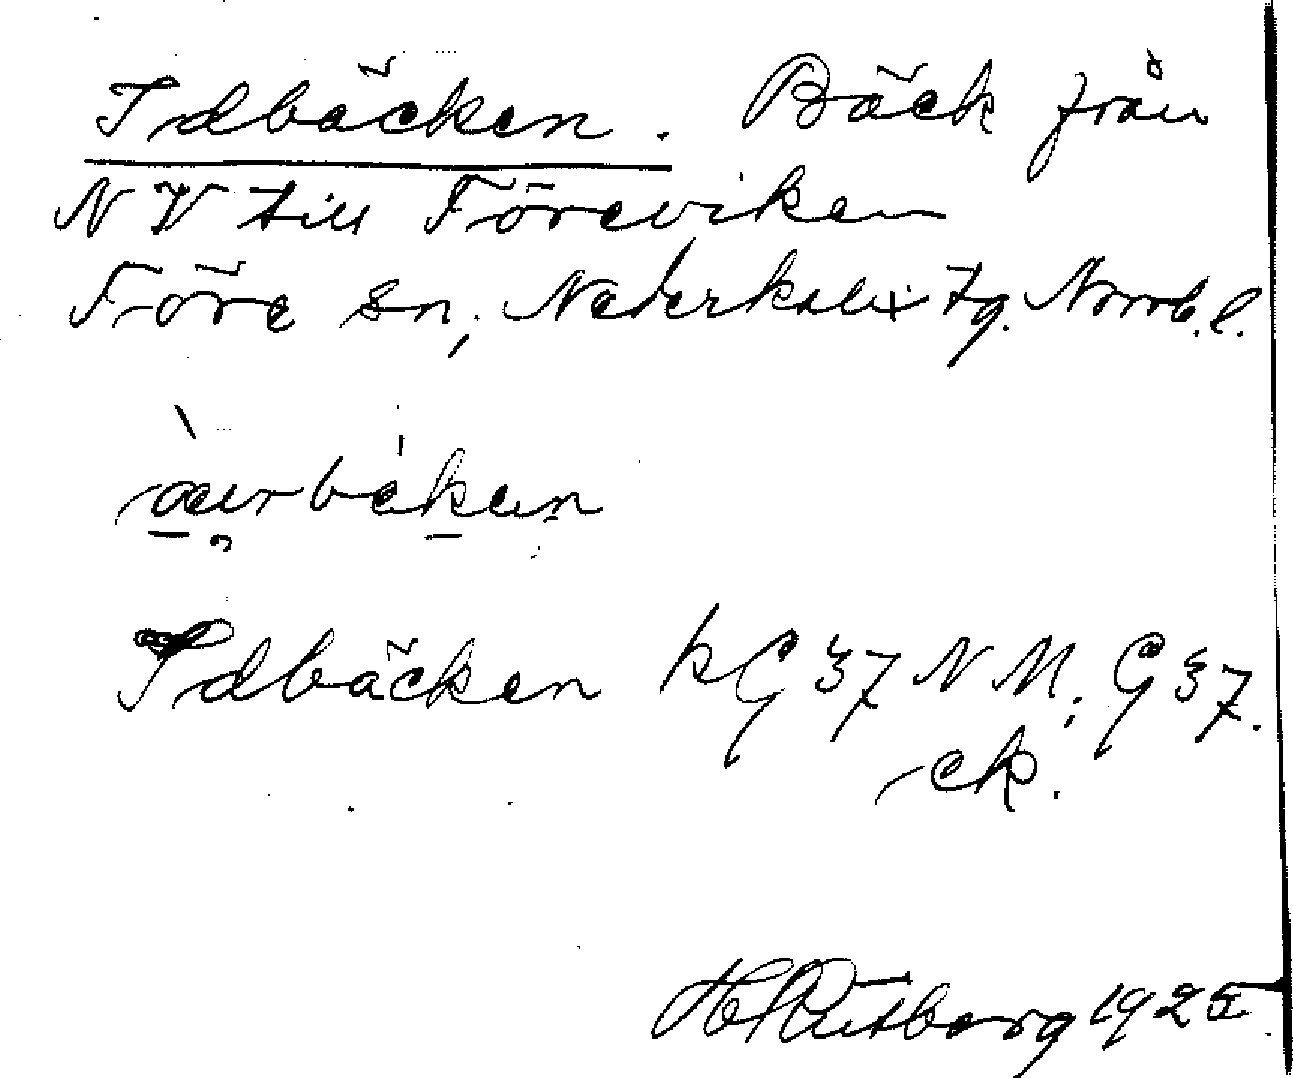 Idbäcken. Bäck från
NV till Töreviken
Töre sn, Nederkalix tg. Norrb. l.
Idbäcken kG 37 N M; G 37.
ck.
H Rutberg 1925